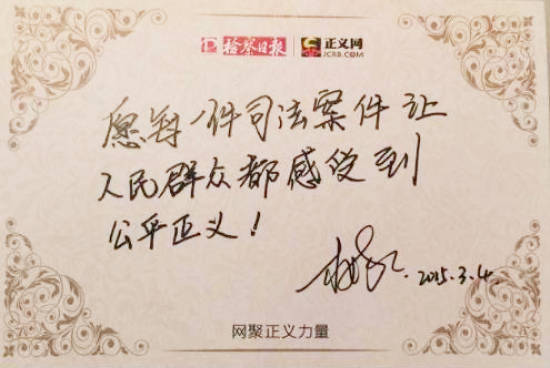 检察日报 正义网
JCRB.COM
愿每一件司法案件让
人民群众都感受到
公平正义!
2015.3.4.
网聚正义力量